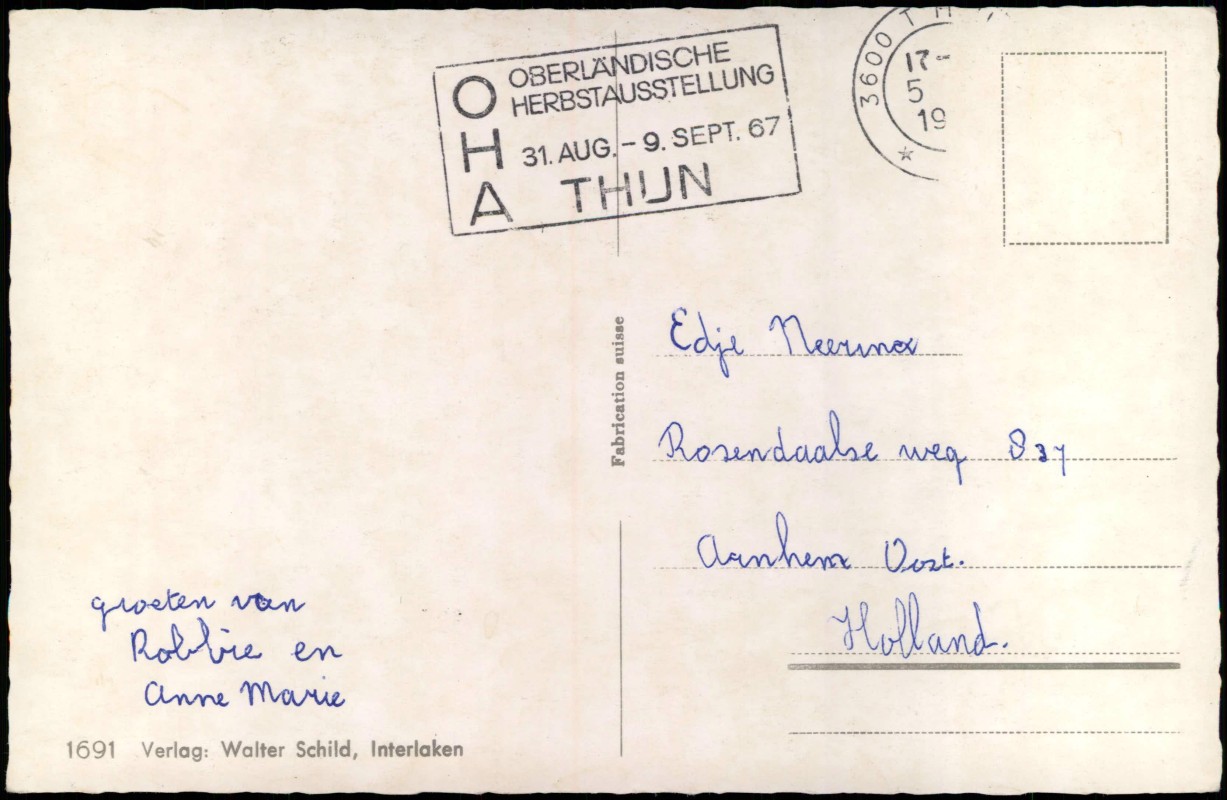 OHA
OBERLÄNDISCHE
HERBSTAUSSTELLUNG
31. AUG. – 9. SEPT. 67
THUN
3600 TH
17-
5
19
Fabrication suisse
Edje
Rosendaalse weg 837
Arnhem Oost.
Holland.
groeten van
Robbie en
Anne Marie
1691 Verlag: Walter Schild, Interlaken